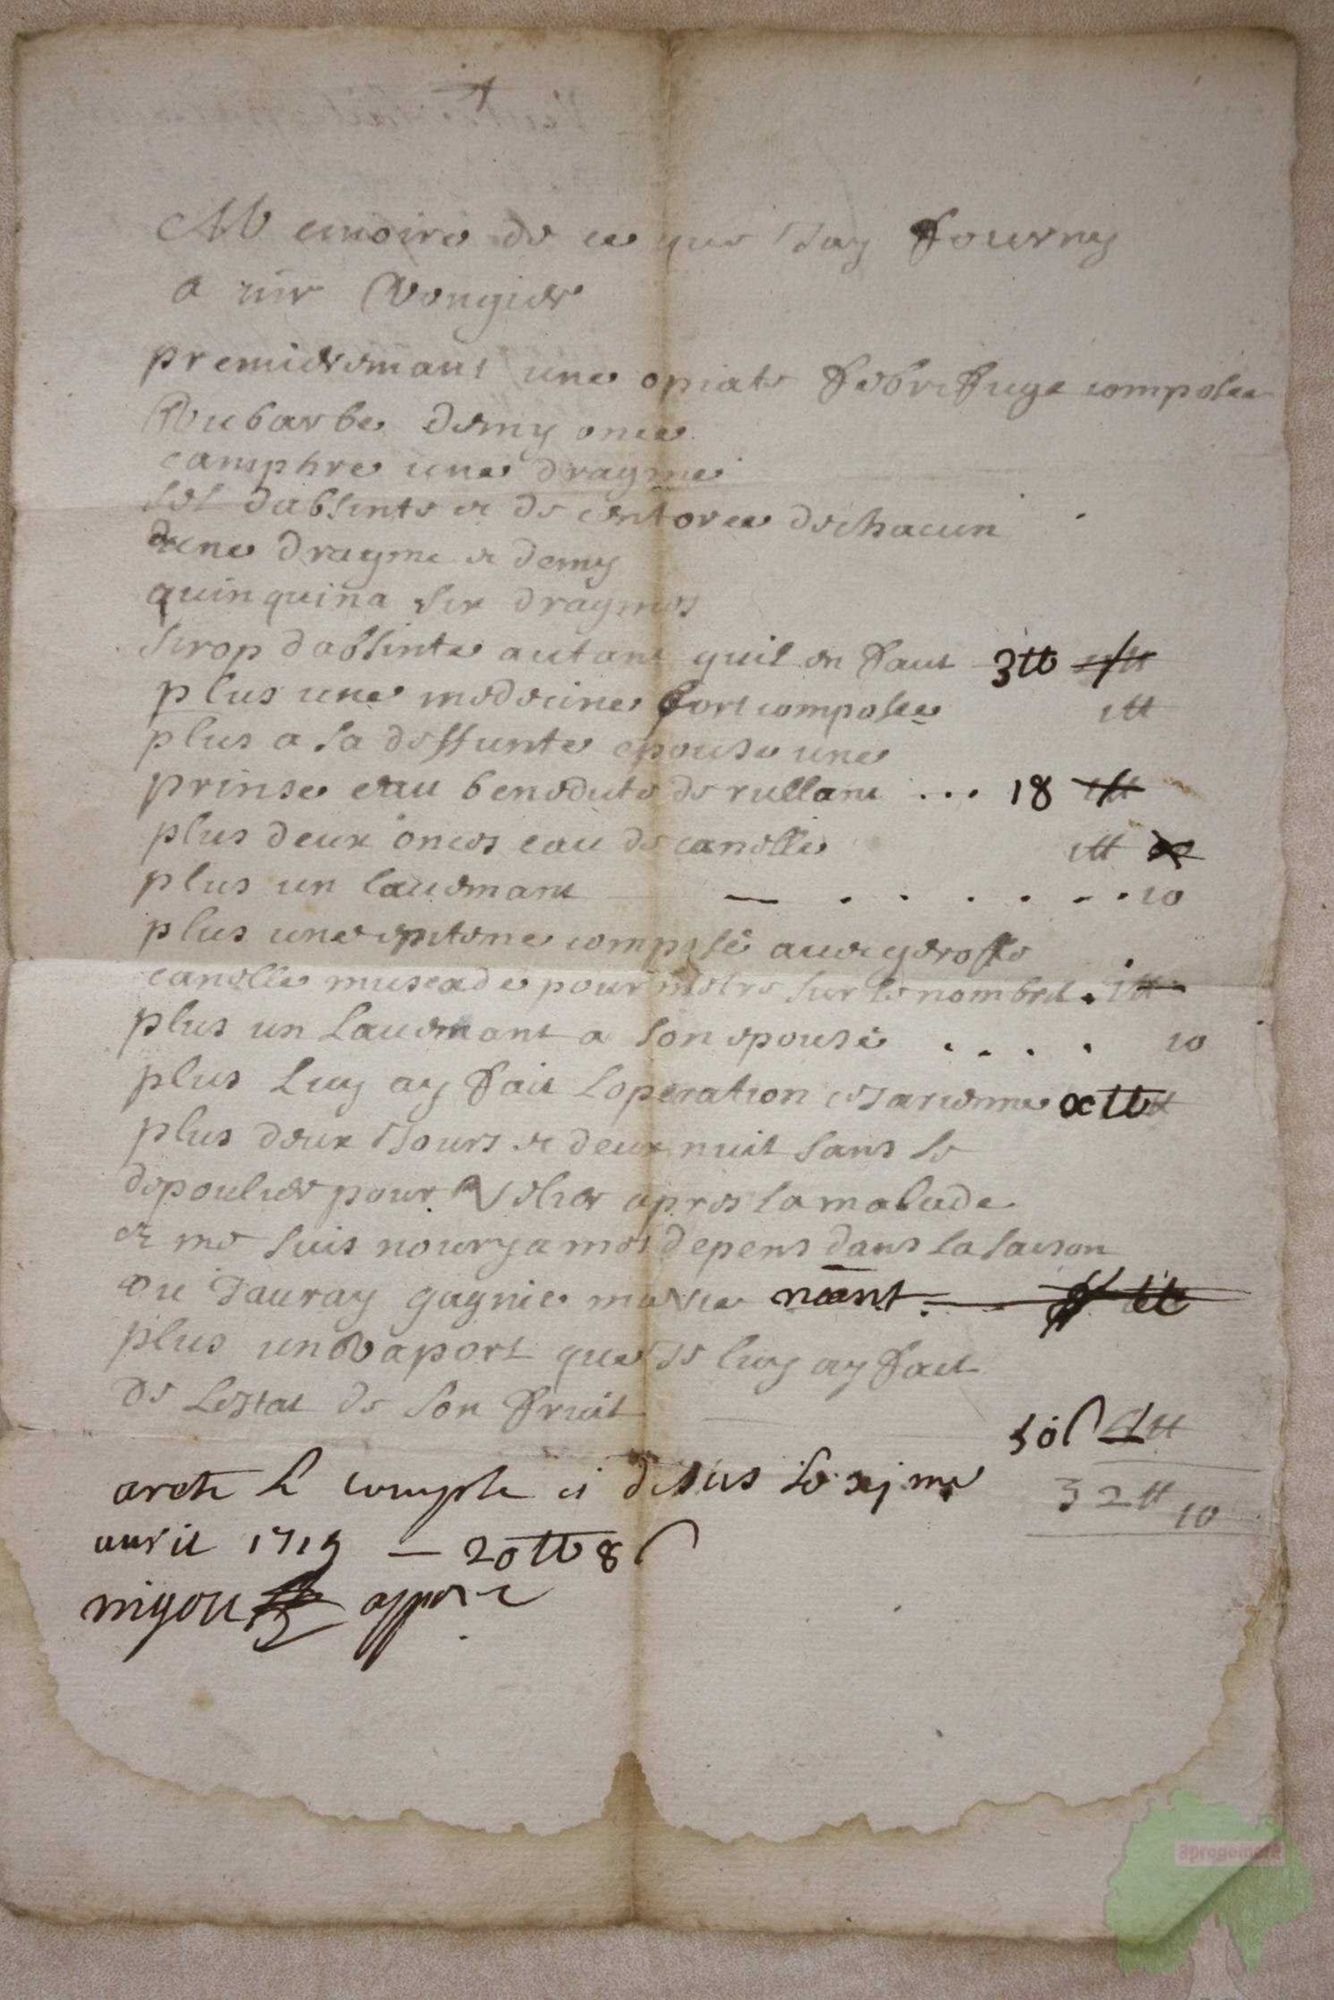 Memoire de ce que Jay fourny
a mr Rougier
premieremant une opiate febrifuge composee
Rubarbe demy once
camphre une dragme
sel dabsinte et de centoree dechacun
une dragme et demy
quinquina six dragmes
sirop dabsinte autant quil en faut 3tt
plus une medecine fort composee 1tt
plus a sa deffunte epouse une
prinse eau benedite de rullant ... 18
plus deux onces eau de canelle 1tt
plus un lavemant — . . . . . . . 10
plus une epiteme composé avec gerofle
canelle muscade pour metre sur le nombril . 1tt
plus un lavemant a son epouse . . . . 10
plus luy ay fait loperation cesarienne xtt
plus deux Jours et deux nuit sans se
depoulier pour Velier apres la malade
et me suis noury a mes depens dans la saison
ou Jauray gagnie ma vie neant
plus un Raport que Je luy ay fait
de lestat de son fruit 30s
areté le compte ci desus le xj me
avril 1719 — 20tt 8s
32tt 10
aprogemere